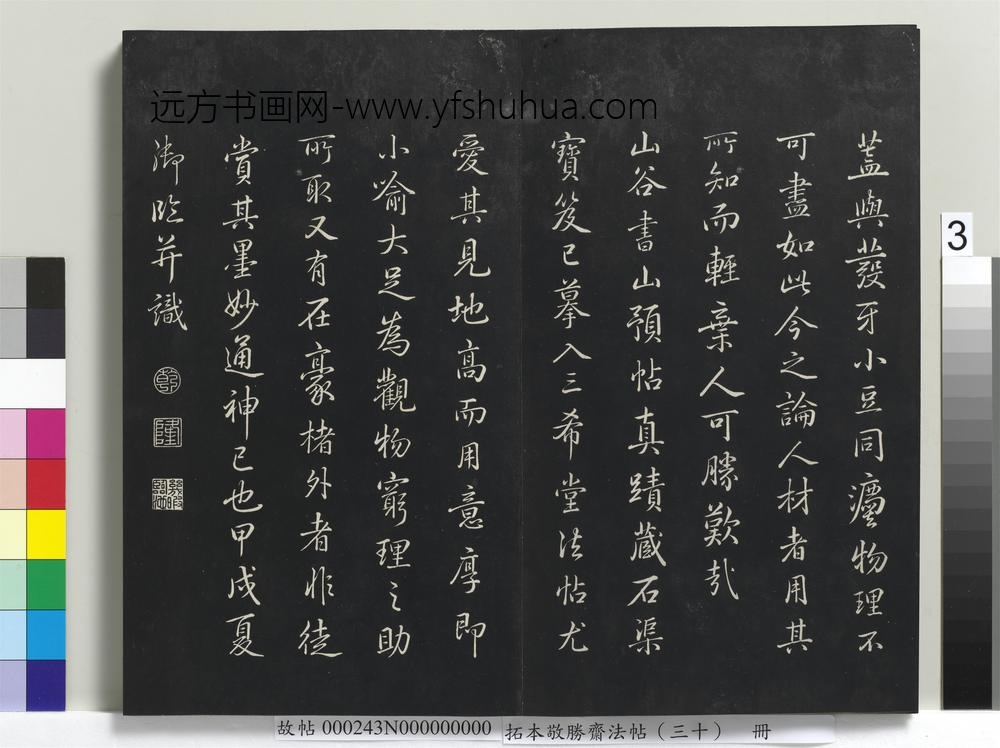 远方书画网-www.yfshuhua.com
蓋與發牙小豆同癭物理不
可盡如此今之論人材者用其
所知而輕棄人可勝歎哉
山谷書山預帖真蹟藏石渠
寶笈已摹入三希堂法帖尤
愛其見地高而用意厚即
小喻大足為觀物窮理之助
所取又有在豪楮外者非徒
賞其墨妙通神已也甲戌夏
御臨并識
乾
隆
3
故帖 000243N000000000 拓本敬勝齋法帖（三十） 冊